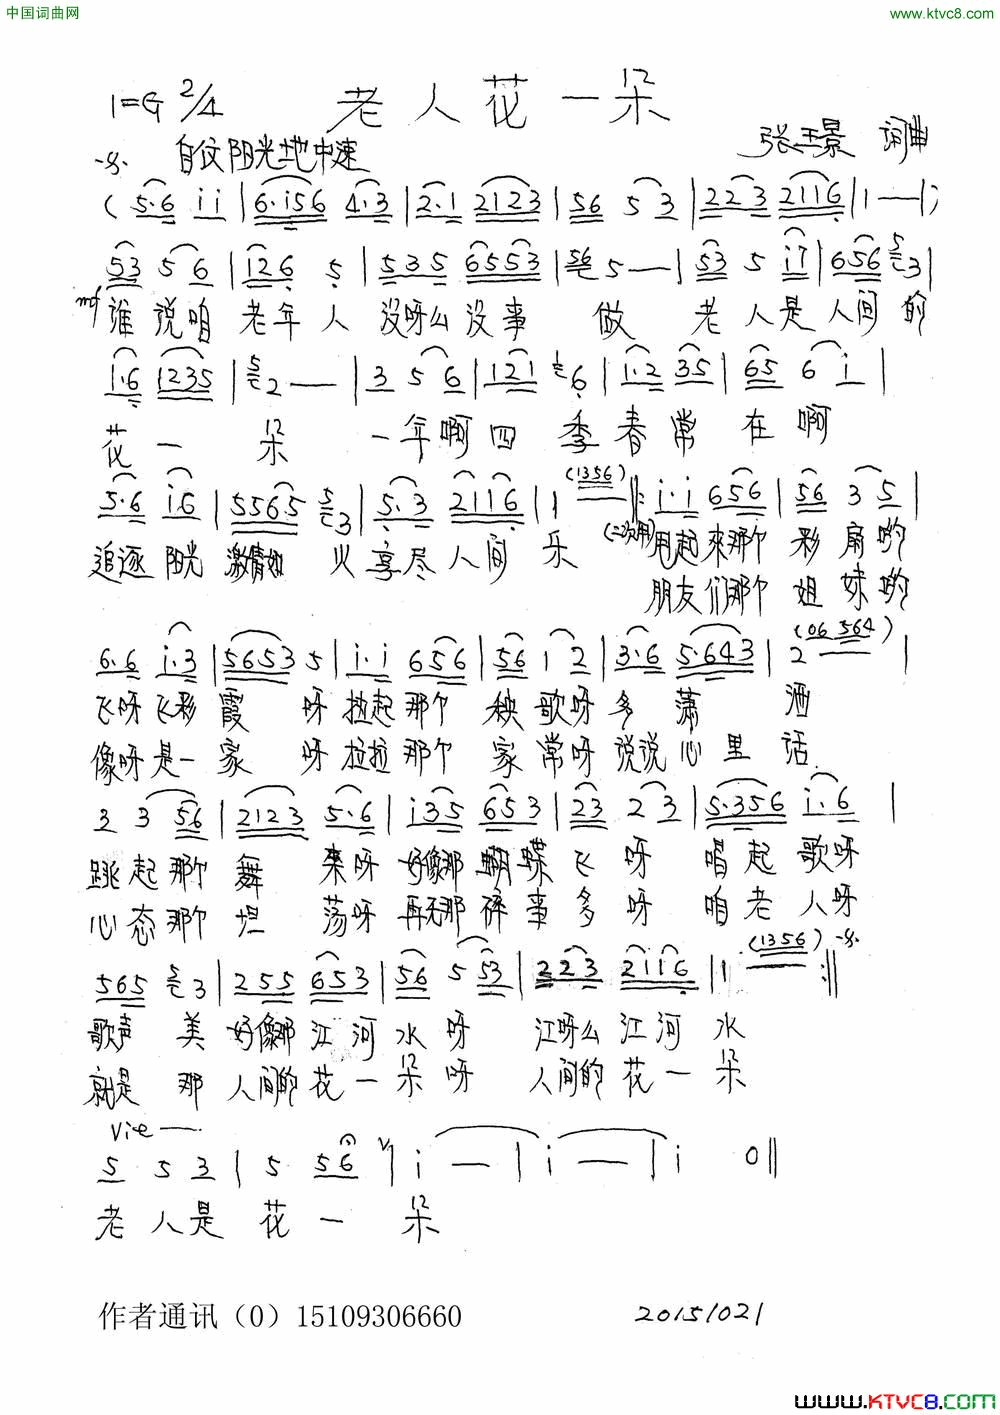 中国词曲网
www.ktvc8.com
1=G 2/4 老人花一朵
自在阳光地中速 张玉景 词曲
(5·6 i i | 6·i56 4·3 | 2·1 2123 | 56 5 3 | 223 2116 | 1 — — |)
53 5 6 | 126 5 | 535 6553 | 56 5 — — | 53 5 i7 | 656 5 3 |
mf 谁说咱老年人没呀么没事做老人是人间的
1·6 1235 | 5 2 — | 3 5 6 | 121 1 6 | 1·2 35 | 65 6 i |
花一朵一年啊四季春常在啊
5·6 i6 | 5565 5 3 | 5·3 2116 | 1 (1356) ‖: i·i 656 | 56 3 5 |
追逐阳光激情如火享尽人间乐 (二次用) 甩起来那个彩扇哟
朋友们那个姐妹哟
6·6 i·3 | 5653 5 | i·i 656 | 56 1 2 | 3·6 5·643 | 2 (06 564) |
飞呀飞彩霞呀拉起那个秧歌呀多潇洒
像呀是一家呀拉拉那个家常呀说说心里话
3 3 56 | 2123 5·6 | i35 653 | 23 2 3 | 5·356 i·6 |
跳起那个舞来呀好像那蝴蝶飞呀唱起歌呀
心态那个坦荡呀再无那碎事多呀咱老人呀
565 5 3 | 255 653 | 56 5 53 | 223 2116 | 1 (1356) :‖
歌声美好像那江河水呀江呀么江河水
就是那人间的花一朵呀人间的花一朵
5 5 3 | 5 56 | i — | i — | i 0 ‖
老人是花一朵
作者通讯（0）15109306660 20151021
www.KTVC8.com